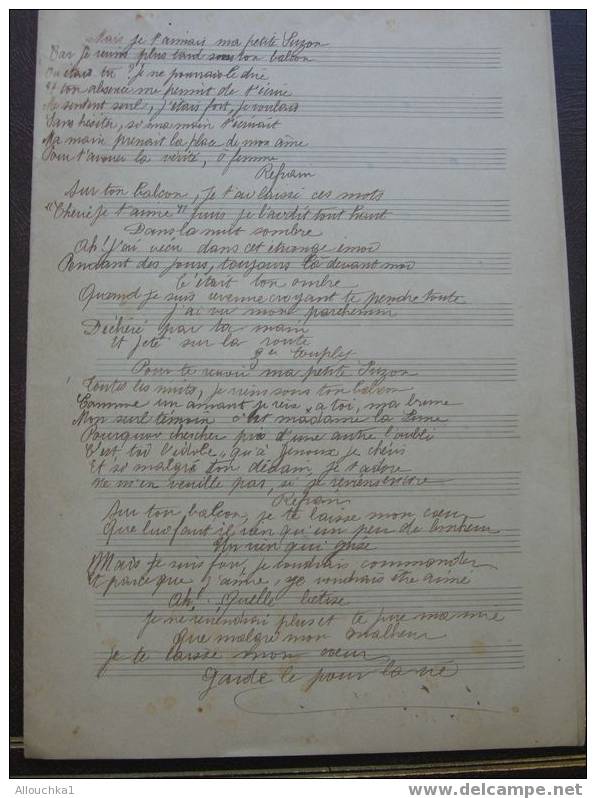 Mais je t'aimais ma petite Suzon
Car je revins plus tard sous ton balcon
Où étais tu ? je ne pourrais le dire
et ton absence me permit de t'écrire
Me sentant seul, j'étais fort, je voulais
Sans hésiter, si ma main t'écrivait
Ma main prenait la place de mon âme
Pour t'avouer la vérité, ô femme
Refrain
Sur ton balcon, je t'ai laissé ces mots
"Cherie je t'aime" puis je l'ai dit tout haut
Dans la nuit sombre
Ah! j'ai vecu dans cet étrange émoi
Pendant des jours, toujours là devant moi
C'était ton ombre
Quand je suis revenu croyant te prendre toute
j'ai vu mon parchemin
Déchiré par ta main
Et jeté sur la route
3e Couplet
Pour te revoir ma petite Suzon
Toutes les nuits, je viens sous ton balcon
Comme un amant je vais à toi, ma brune
Mon seul témoin c'est madame la Lune
Pourquoi chercher près d'une autre l'oubli
C'est toi l'idole, qu'à genoux je chéris
Et si malgré ton dédain, je t'adore
Ne m'en veuille pas, si je reviens encore
Refrain
Sur ton balcon, je te laisse mon coeur
Que lui faut il rien qu'un peu de bonheur
Un rien qui grise
Mais je suis fou, je voudrais commander
Et parce que j'aime, je voudrais etre aimé
Ah! Quelle betise
je ne reviendrai plus et te jure ma mie
Que malgré mon malheur
je te laisse mon coeur
Garde le pour la vie
Allouchka1
www.delcampe.net